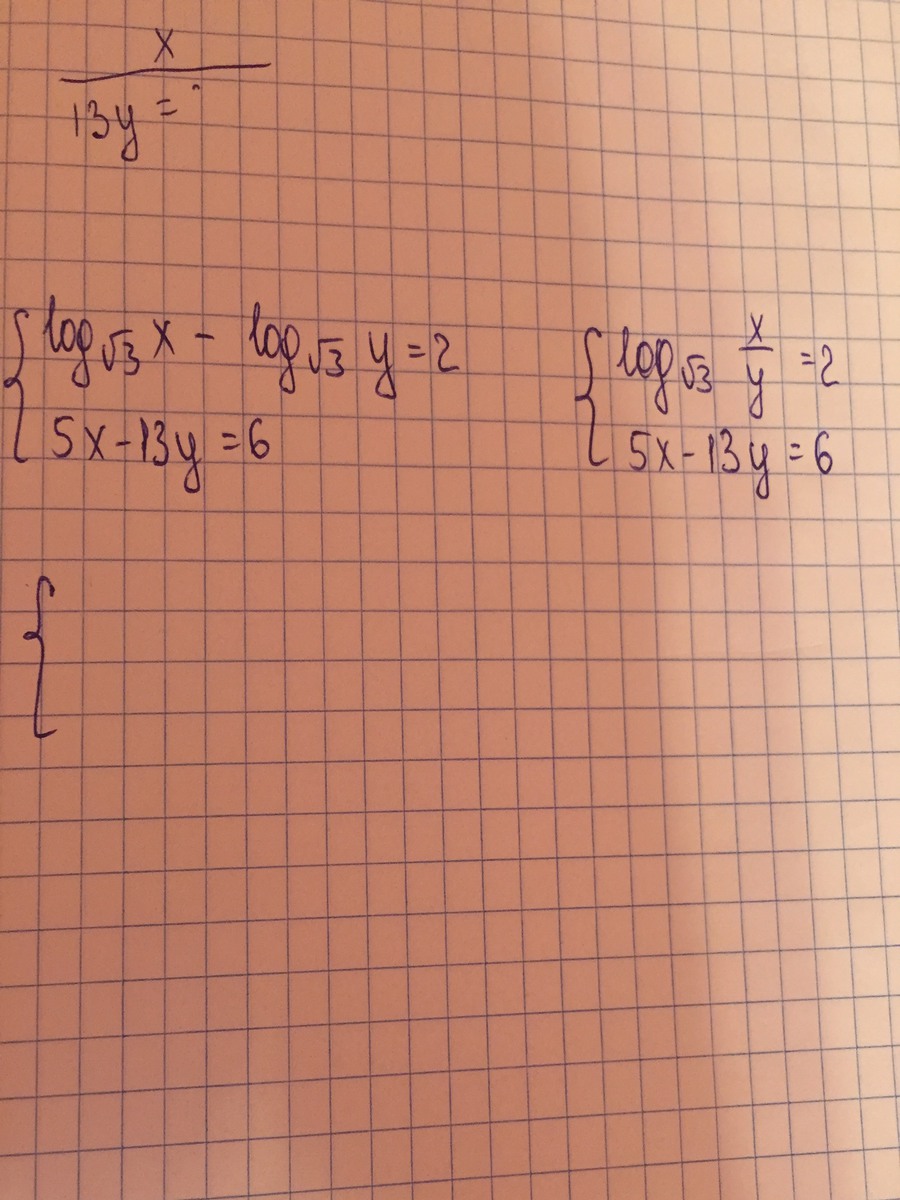 x
13y =
log√3 x - log√3 y = 2
5x - 13y = 6
log√3 x/y = 2
5x - 13y = 6